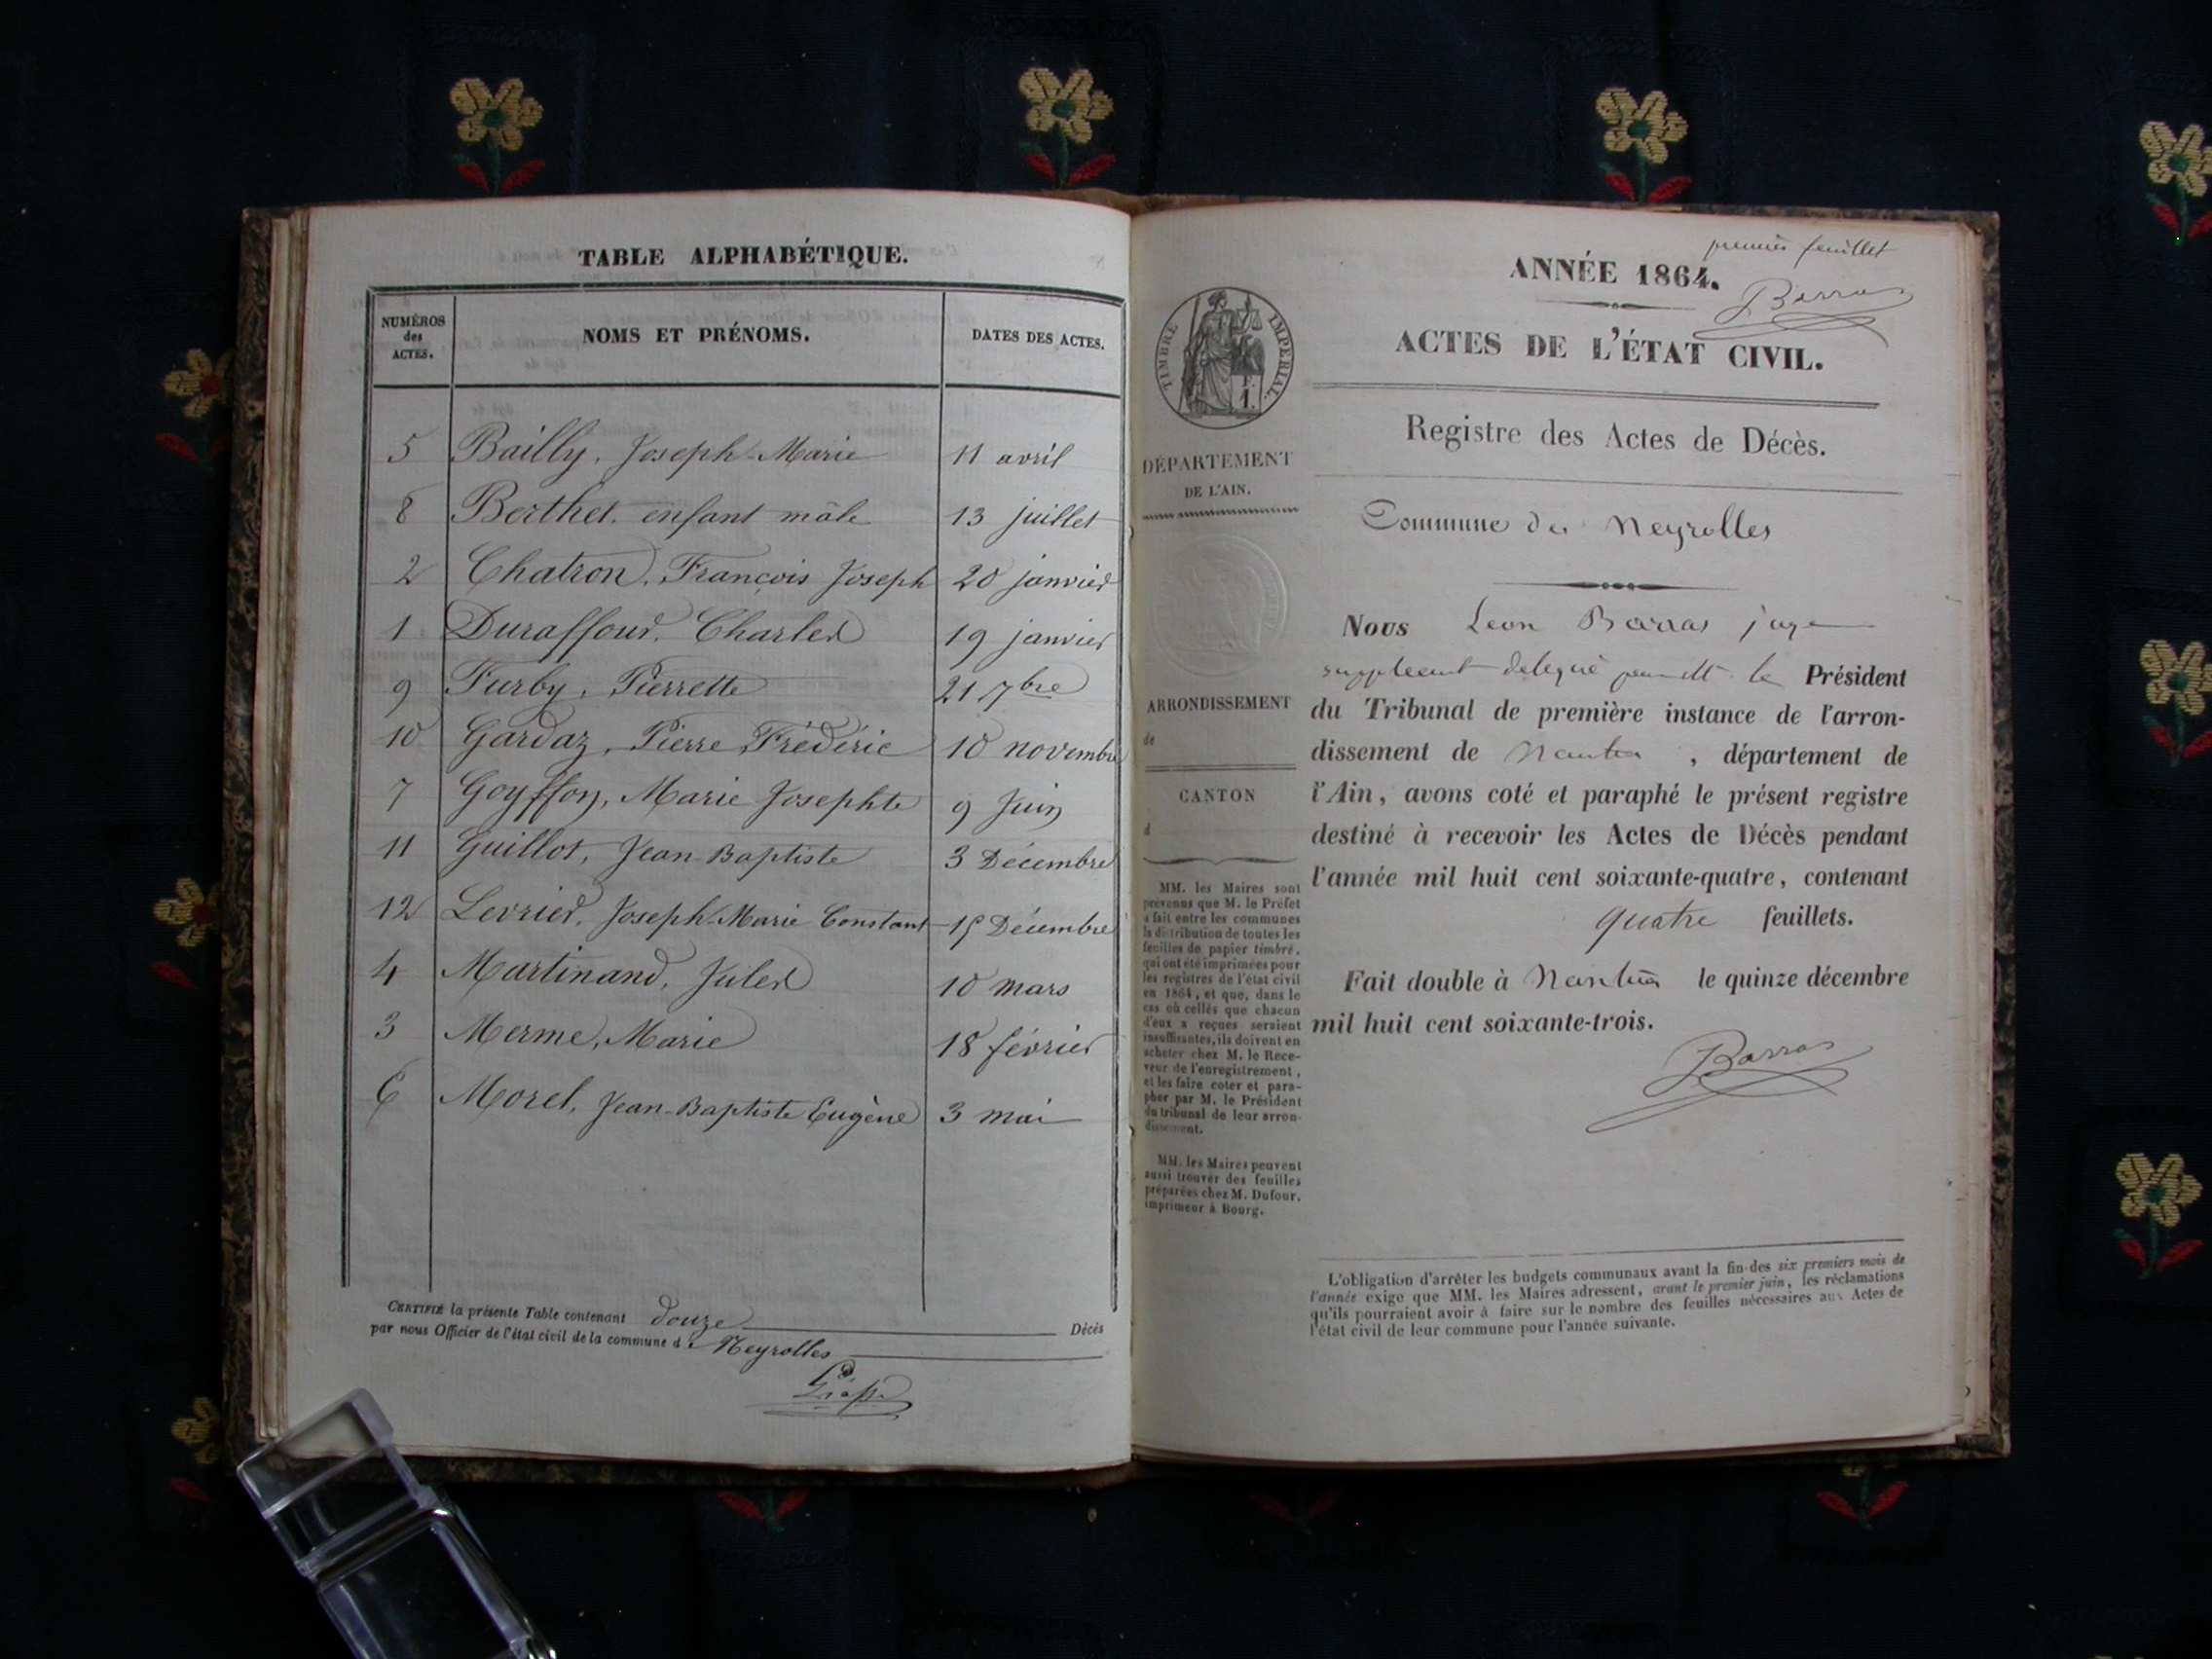 TABLE ALPHABÉTIQUE.
NUMÉROS
des
ACTES.
NOMS ET PRÉNOMS.
DATES DES ACTES.
5 Bailly, Joseph-Marie 11 avril
8 Berthet, enfant mâle 13 juillet
2 Chatron, François Joseph 20 janvier
1 Duraffour, Charles 19 janvier
9 Furby, Pierrette 21 7bre
10 Gardaz, Pierre Frédéric 10 novembre
7 Goyffon, Marie Josephte 9 Juin
11 Guillot, Jean-Baptiste 3 Décembre
12 Levrier, Joseph-Marie Constant 15 Décembre
4 Martinand, Jules 10 mars
3 Merme, Marie 18 février
6 Morel, Jean-Baptiste Eugène 3 mai
CERTIFIÉ la présente Table contenant douze Décès
par nous Officier de l'état civil de la commune d Neyrolles
premier feuillet
ANNÉE 1864.
Barras
ACTES DE L'ÉTAT CIVIL.
Registre des Actes de Décès.
TIMBRE IMPÉRIAL.
F.
1.
DÉPARTEMENT
DE L'AIN.
ARRONDISSEMENT
de
CANTON
d
MM. les Maires sont
prévenus que M. le Préfet
a fait entre les communes
la distribution de toutes les
feuilles de papier timbré,
qui ont été imprimées pour
les registres de l'état civil
en 1864, et que, dans le
cas où celles que chacun
d'eux a reçues seraient
insuffisantes, ils doivent en
acheter chez M. le Rece-
veur de l'enregistrement,
et les faire coter et para-
pher par M. le Président
du tribunal de leur arron-
dissement.
MM. les Maires peuvent
aussi trouver des feuilles
préparées chez M. Dufour,
imprimeur à Bourg.
Commune des Neyrolles
Nous Leon Barras juge
suppleant delegué le Président
du Tribunal de première instance de l'arron-
dissement de Nantua, département de
l'Ain, avons coté et paraphé le présent registre
destiné à recevoir les Actes de Décès pendant
l'année mil huit cent soixante-quatre, contenant
quatre feuillets.
Fait double à Nantua le quinze décembre
mil huit cent soixante-trois.
Barras
L'obligation d'arrêter les budgets communaux avant la fin des six premiers mois de
l'année exige que MM. les Maires adressent, avant le premier juin, les réclamations
qu'ils pourraient avoir à faire sur le nombre des feuilles nécessaires aux Actes de
l'état civil de leur commune pour l'année suivante.